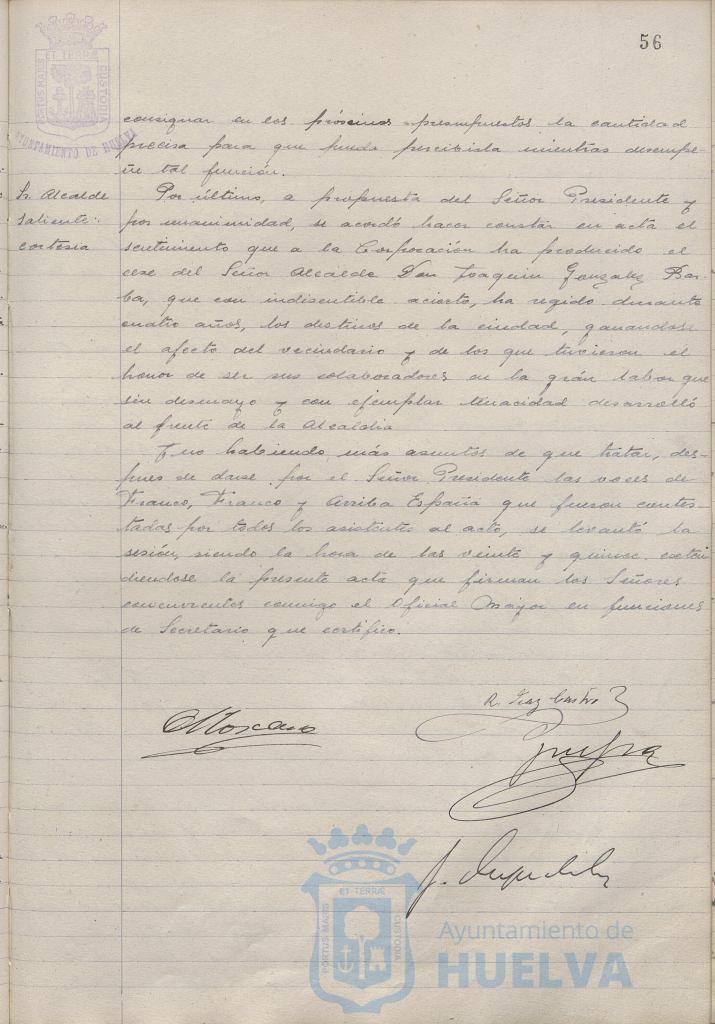 56
ET TERRÆ
PORTUS MARIS
CUSTODIA
AYUNTAMIENTO DE HUELVA
consignar en los próximos presupuestos la cantidad
precisa para que pueda percibirla mientras desempe-
ñe tal función.
Sr. Alcalde
saliente:
cortesia
Por último, a propuesta del Señor Presidente y
por unanimidad, se acordó hacer constar en acta el
sentimiento que a la Corporación ha producido el
cese del Señor Alcalde Don Joaquin Gonzalez Bar-
ba, que con indiscutible acierto, ha regido durante
cuatro años, los destinos de la ciudad, ganandose
el afecto del vecindario y de los que tuvieron el
honor de ser sus colaboradores en la grán labor que
sin desmayo y con ejemplar tenacidad desarrolló
al frente de la Alcaldia
Y no habiendo más asuntos de que tratar, des-
pues de darse por el Señor Presidente las voces de
Franco, Franco y Arriba España que fueron contes-
tadas por todos los asistentes al acto, se levantó la
sesión, siendo la hora de las veinte y quince exten
diendose la presente acta que firman los Señores
concurrentes conmigo el Oficial Mayor en funciones
de Secretario que certifico.
R. Diaz Castro
ET TERRÆ
PORTUS MARIS
CUSTODIA
Ayuntamiento de
HUELVA